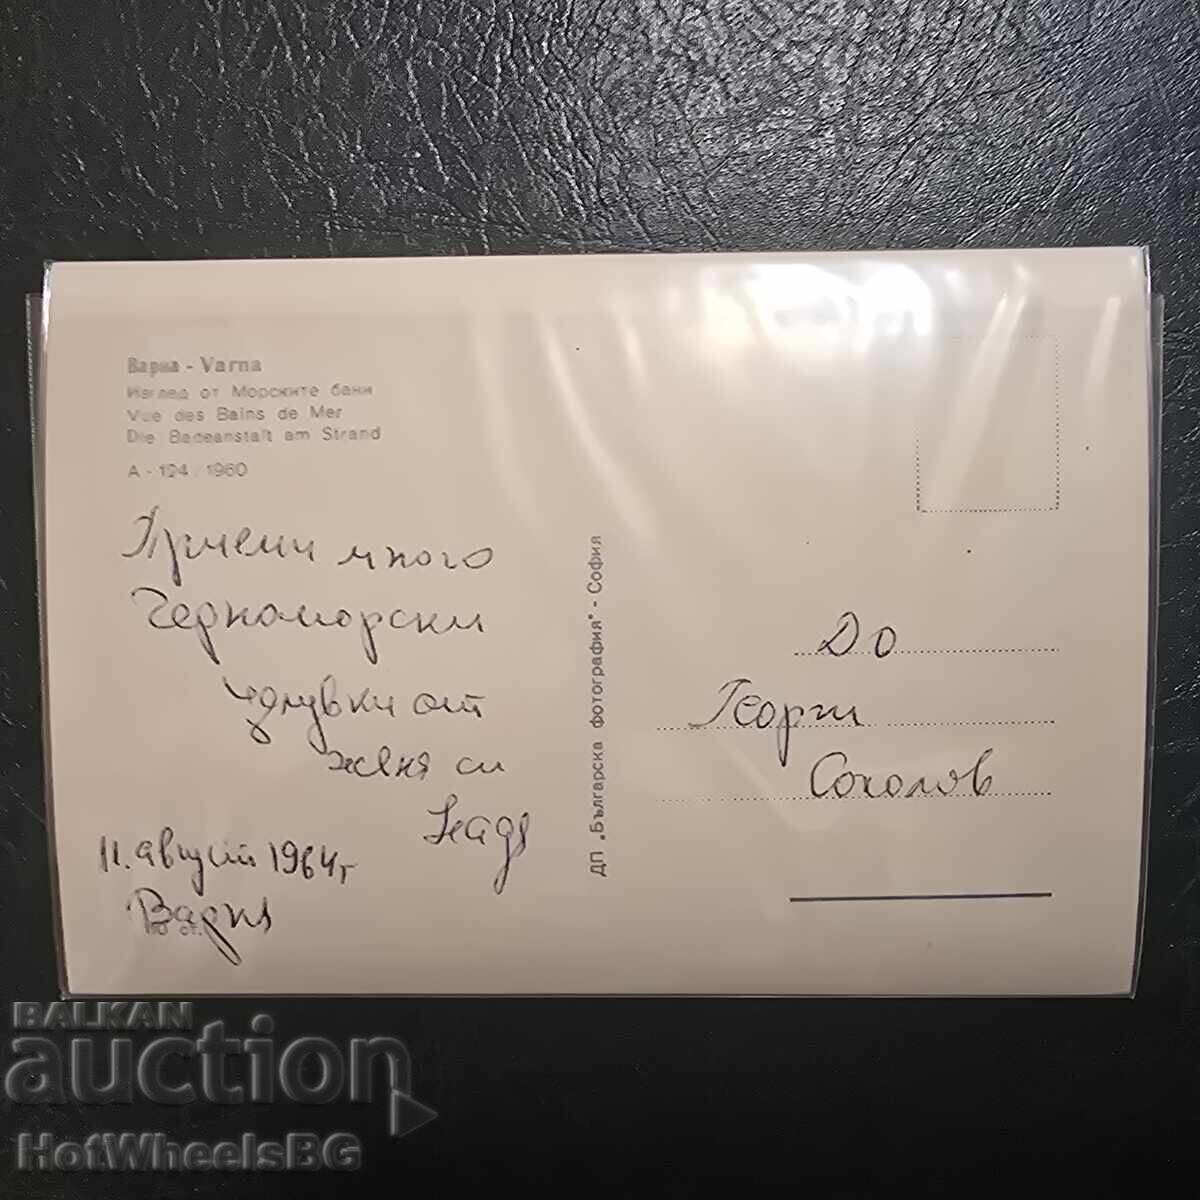 Варна - Varna
Изглед от Морските бани
Vue des Bains de Mer
Die Badeanstalt am Strand
А - 194 / 1960
Приеми много
Черноморски
целувки от
жена си
11. август 1964 г
Варна
10 ст.
ДП „Българска фотография" - София
До
Георги
Соколов
BALKAN
auction
HotWheelsBG